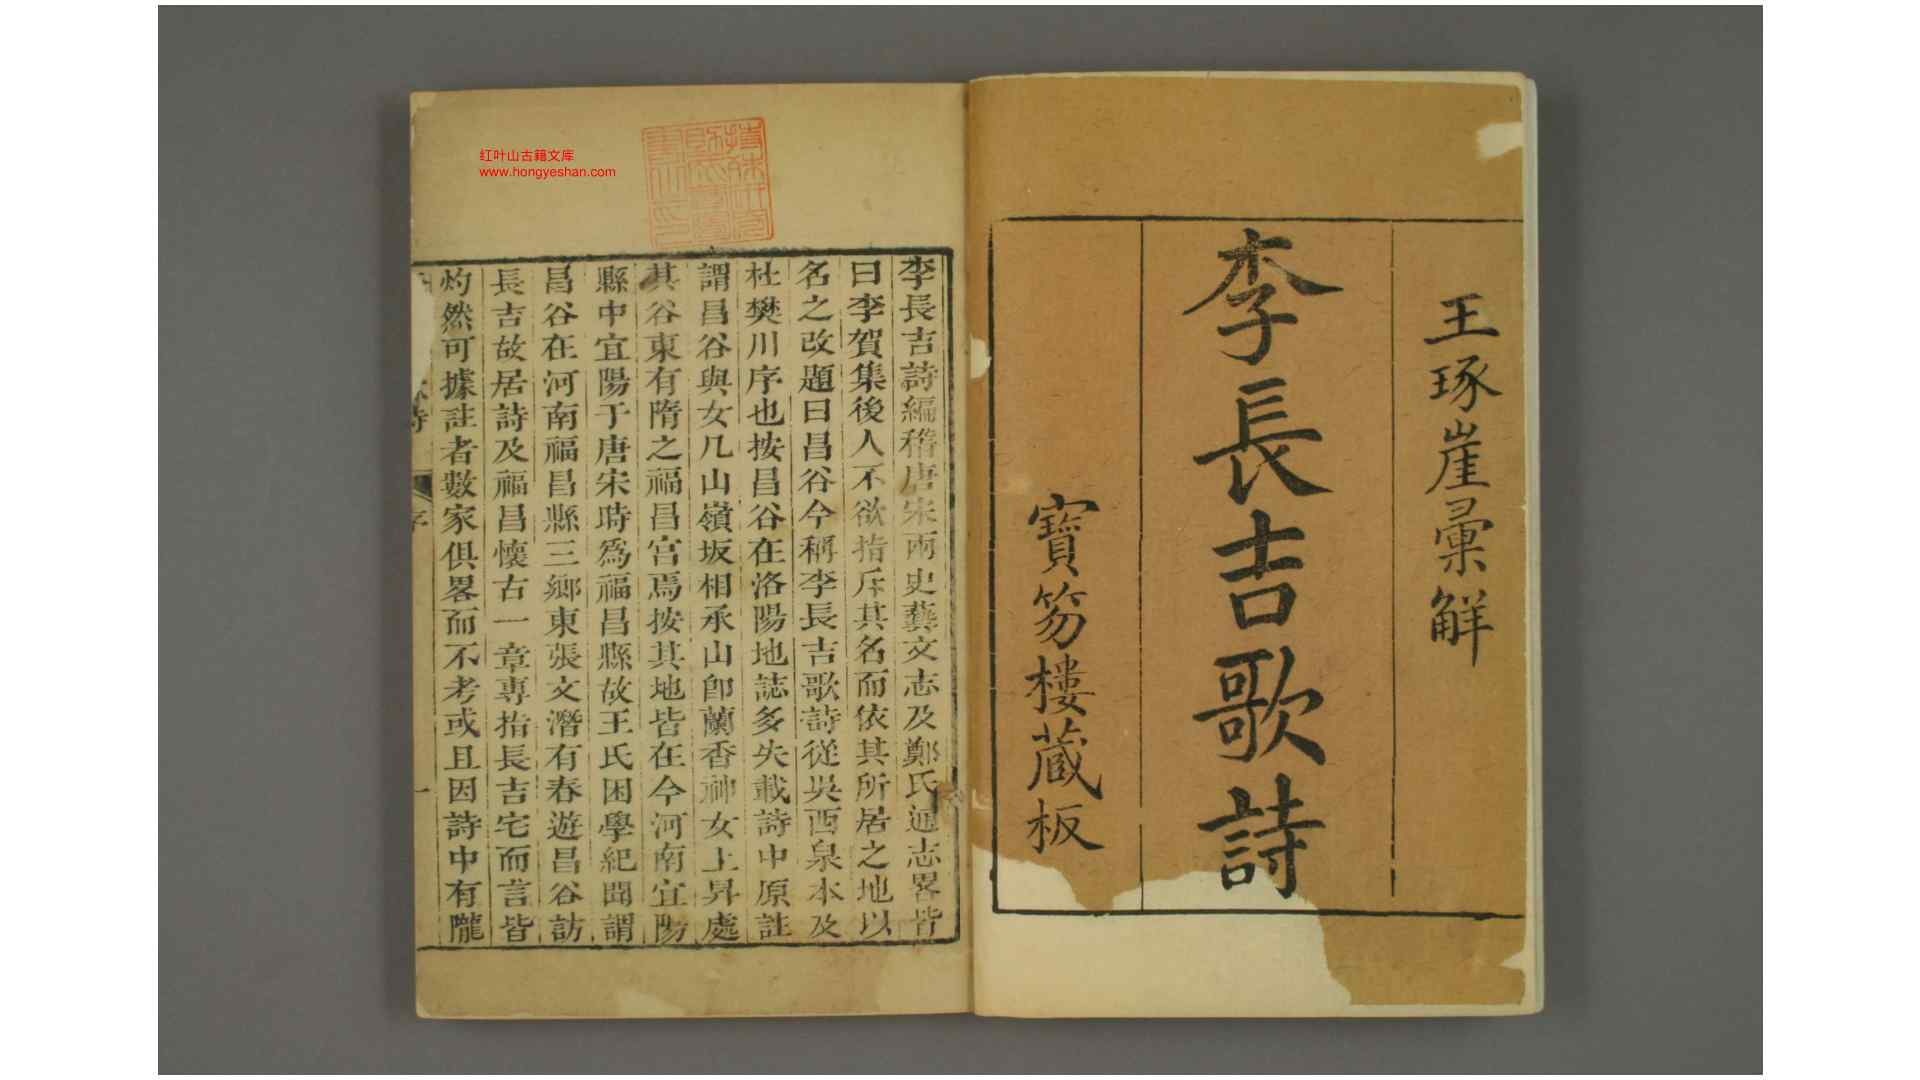 王琢崖彙解
李長吉歌詩
寶笏樓蔵板
红叶山古籍文库
www.hongyeshan.com
李長吉詩編稽唐宋兩史藝文志及鄭氏通志畧皆
曰李賀集後人不欲指斥其名而依其所居之地以
名之改題曰昌谷今稱李長吉歌詩從吳西泉本及
杜樊川序也按昌谷在洛陽地誌多失載詩中原註
謂昌谷與女几山嶺坂相承山卽蘭香神女上昇處
其谷東有隋之福昌宮焉按其地皆在今河南宜陽
縣中宜陽于唐宋時爲福昌縣故王氏困學紀聞謂
昌谷在河南福昌縣三鄉東張文潛有春遊昌谷訪
長吉故居詩及福昌懷古一章專指長吉宅而言皆
灼然可據註者數家俱畧而不考或且因詩中有隴